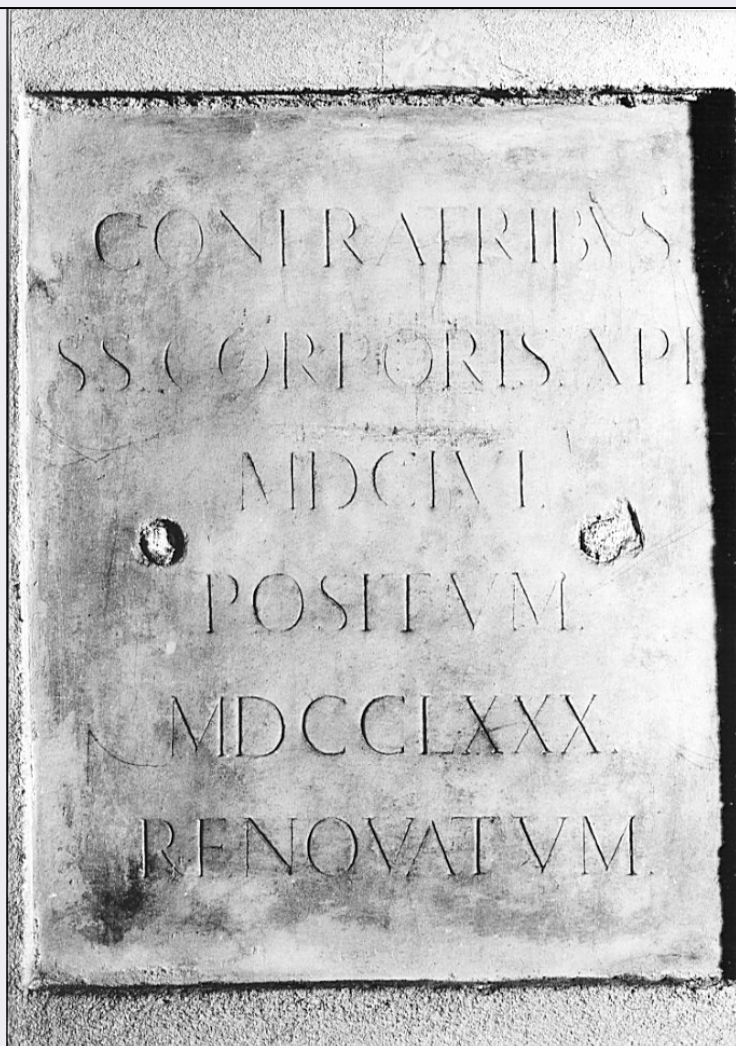 CONFRATRIBVS.
SS. CORPORIS. API
MDCIVI.
POSITVM.
MDCCLXXX.
RENOVATVM.